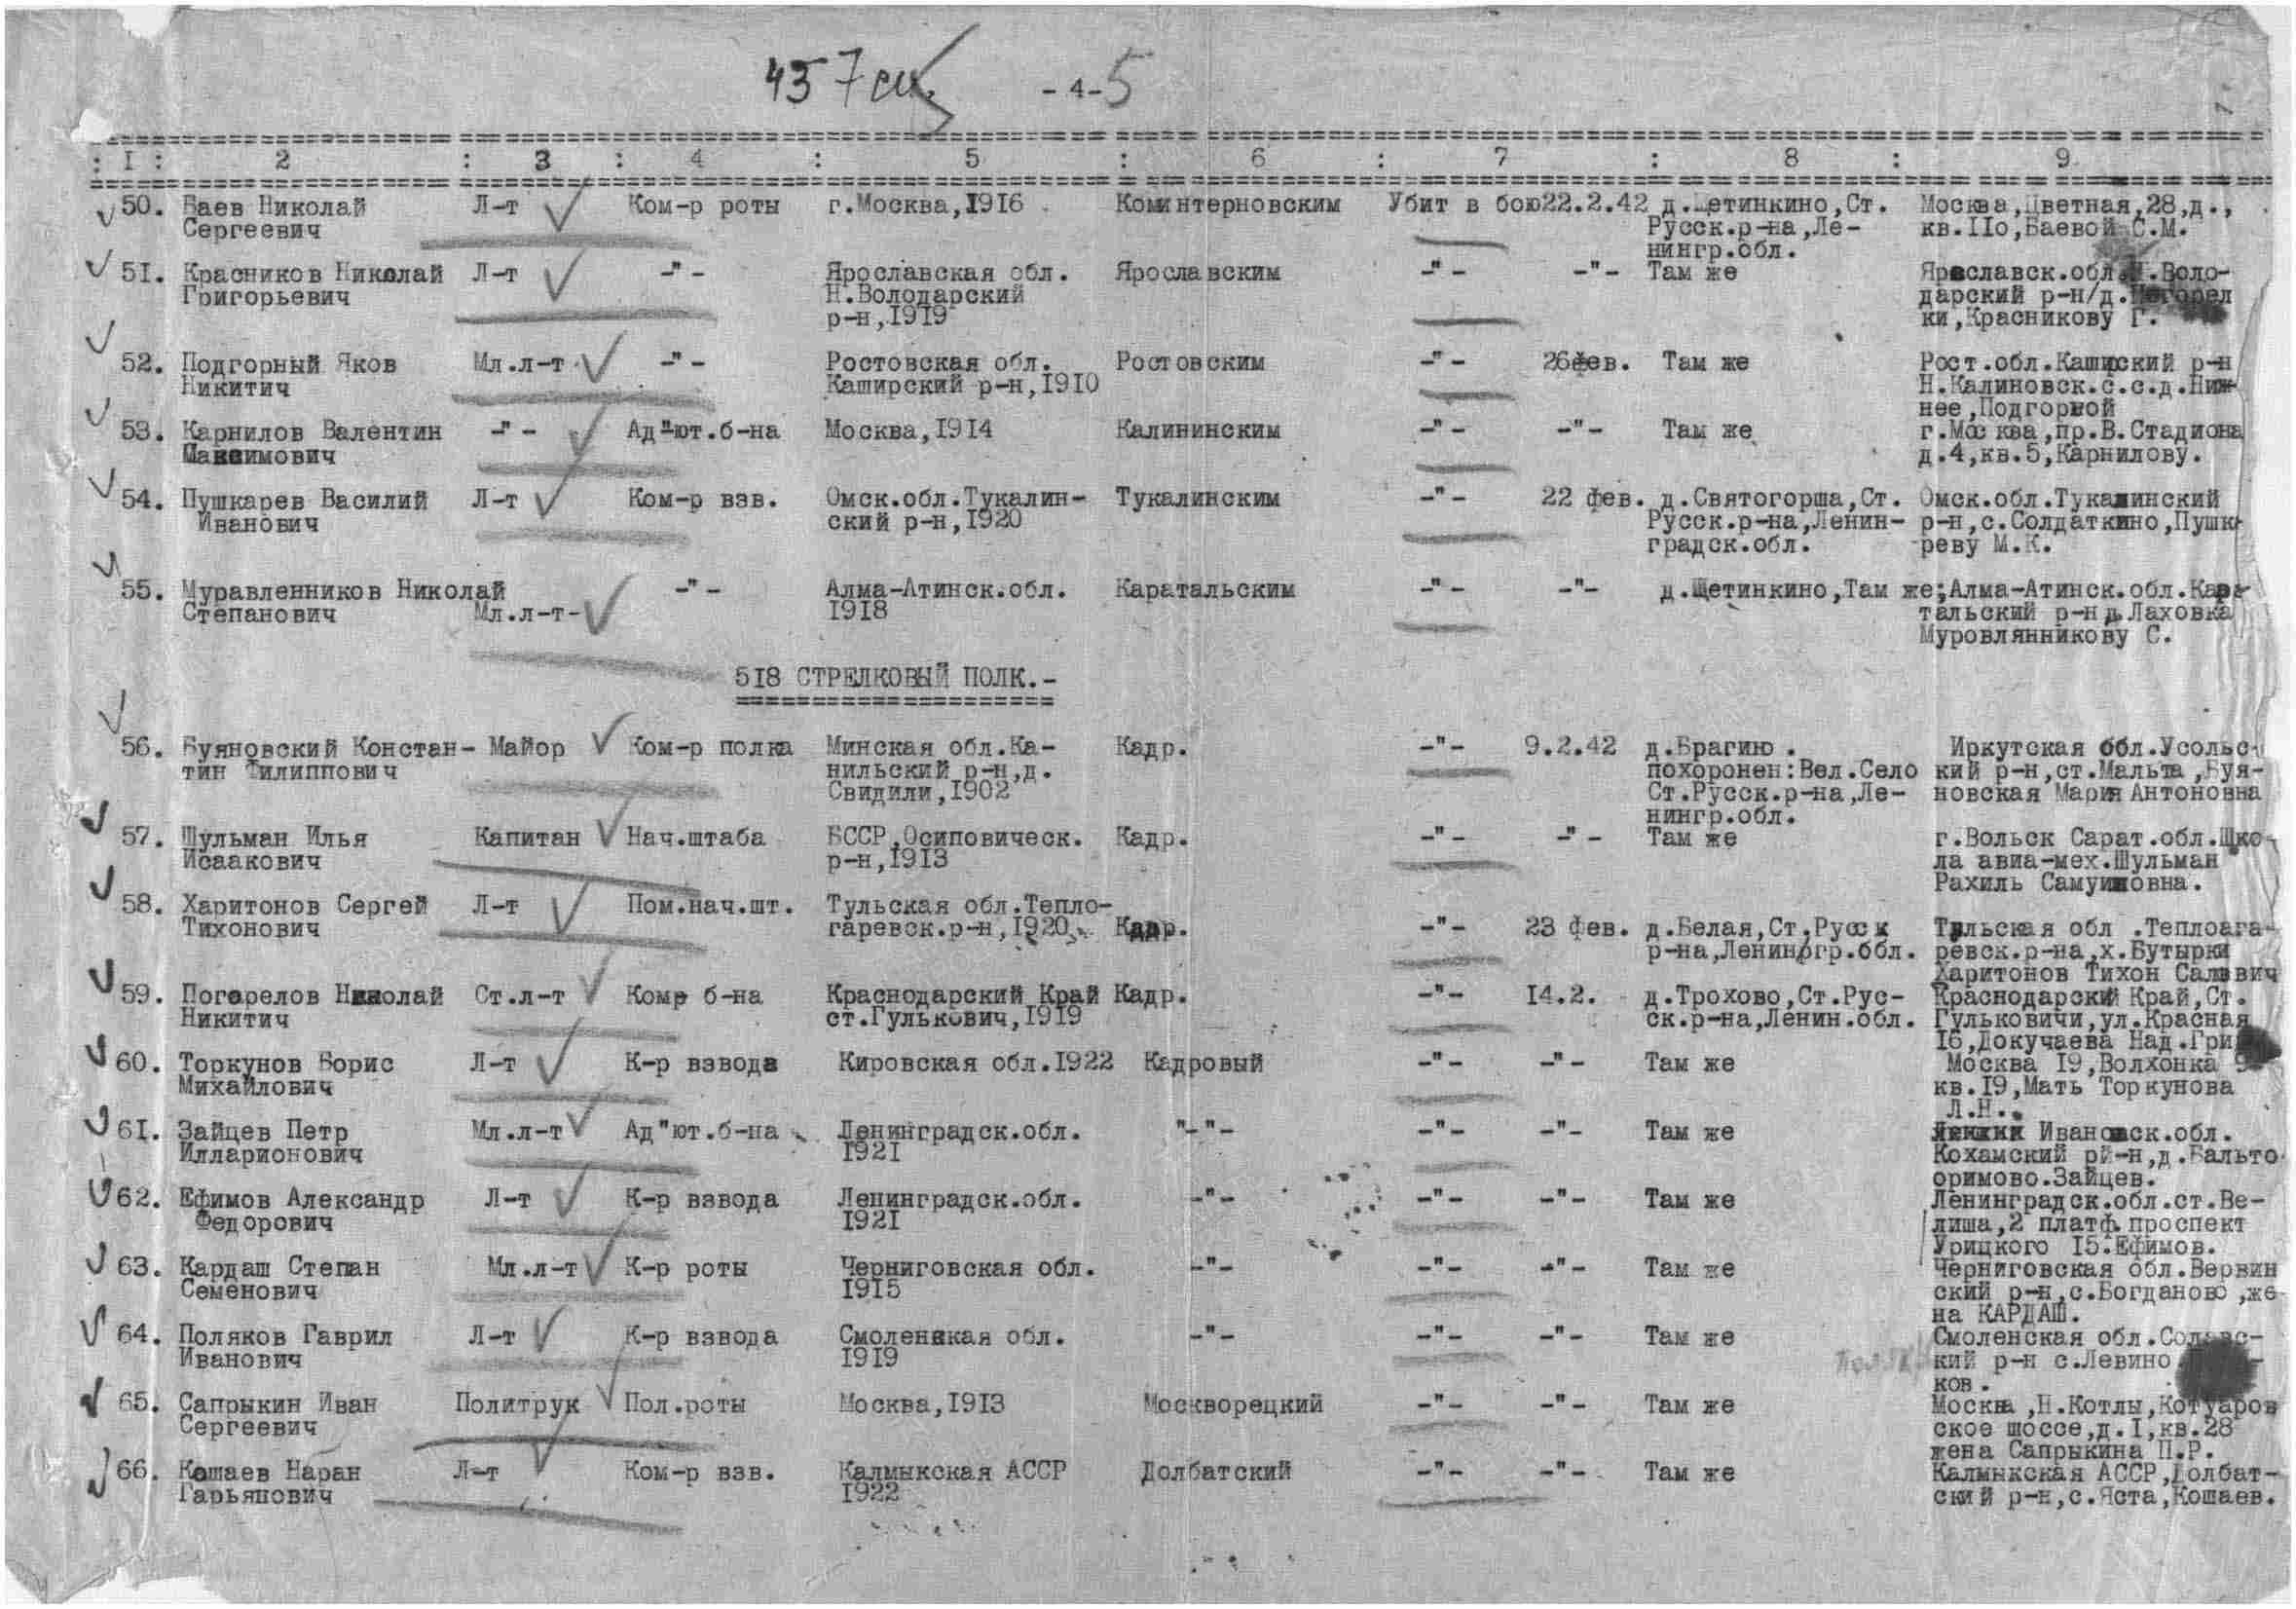 437 сп - 4 - 5
: I : 2 : 3 : 4 : 5 : 6 : 7 : 8 : 9
50. Баев Николай Л-т Ком-р роты г.Москва,I9I6 Коминтерновским Убит в бою 22.2.42 д.Щетинкино,Ст. Москва,Цветная,28,д.,
Сергеевич Русск.р-на,Ле- кв.IIо,Баевой С.М.
нингр.обл.
5I. Красников Николай Л-т -"- Ярославская обл. Ярославским -"- -"- Там же Ярославск.обл. Н.Воло-
Григорьевич Н.Володарский дарский р-н/д.
р-н,I9I9 ки,Красникову Г.
52. Подгорный Яков Мл.л-т -"- Ростовская обл. Ростовским -"- 26фев. Там же Рост.обл.Каширский р-н
Никитич Каширский р-н,I9I0 Н.Калиновск.с.с.д.Ниж-
нее,Подгорной
53. Карнилов Валентин -"- Ад"ют.б-на Москва,I9I4 Калининским -"- -"- Там же г.Москва,пр.В.Стадиона
Максимович д.4,кв.5,Карнилову.
54. Пушкарев Василий Л-т Ком-р взв. Омск.обл.Тукалин- Тукалинским -"- 22 фев. д.Святогорша,Ст. Омск.обл.Тукалинский
Иванович ский р-н,I920 Русск.р-на,Ленин- р-н,с.Солдаткино,Пушк
градск.обл. реву М.К.
55. Муравленников Николай -"- Алма-Атинск.обл. Каратальским -"- -"- д.Щетинкино,Там же;Алма-Атинск.обл.Кара-
Степанович Мл.л-т- I9I8 тальский р-н д.Лаховка
Муровлянникову С.
5I8 СТРЕЛКОВЫЙ ПОЛК.-
56. Буяновский Констан- Майор Ком-р полка Минская обл.Ка- Кадр. -"- 9.2.42 д.Брагию. Иркутская обл.Усольс-
тин Филиппович нильский р-н,д. похоронен:Вел.Село кий р-н,ст.Мальта,Буя-
Свидили,I902 Ст.Русск.р-на,Ле- новская Мария Антоновна
нингр.обл.
57. Шульман Илья Капитан Нач.штаба БССР,Осиповическ. Кадр. -"- -"- Там же г.Вольск Сарат.обл.Шко-
Исаакович р-н,I9I3 ла авиа-мех.Шульман
Рахиль Самуиловна.
58. Харитонов Сергей Л-т Пом.нач.шт. Тульская обл.Тепло-
Тихонович гаревск.р-н,I920 Кадр. -"- 23 фев. д.Белая,Ст.Русск Тульская обл .Теплоага-
р-на,Ленингр.обл. ревск.р-на,х.Бутырки
Харитонов Тихон Савевич
59. Погорелов Николай Ст.л-т Комр б-на Краснодарский Край Кадр. -"- I4.2. д.Трохово,Ст.Рус- Краснодарский Край,Ст.
Никитич ст.Гулькович,I9I9 ск.р-на,Ленин.обл. Гульковичи,ул.Красная
I6,Докучаева Над.Гри
60. Торкунов Борис Л-т К-р взвода Кировская обл.I922 Кадровый -"- -"- Там же Москва I9,Волхонка 9
Михайлович кв.I9,Мать Торкунова
Л.Н..
6I. Зайцев Петр Мл.л-т Ад"ют.б-на Ленинградск.обл. "-"- -"- -"- Там же Ивановск.обл.
Илларионович I92I Кохамский рй-н,д.Бальто
оримово.Зайцев.
62. Ефимов Александр Л-т К-р взвода Ленинградск.обл. -"- -"- -"- Там же Ленинградск.обл.ст.Ве-
Федорович I92I лиша,2 платф.проспект
Урицкого I5.Ефимов.
63. Кардаш Степан Мл.л-т К-р роты Черниговская обл. -"- -"- -"- Там же Черниговская обл.Вервин
Семенович I9I5 ский р-н,с.Богданово,же-
на КАРДАШ.
64. Поляков Гаврил Л-т К-р взвода Смоленская обл. -"- -"- -"- Там же Смоленская обл.
Иванович I9I9 кий р-н с.Левино
ков.
65. Сапрыкин Иван Политрук Пол.роты Москва,I9I3 Москворецкий -"- -"- Там же Москва,Н.Котлы,Котуаров
Сергеевич ское шоссе,д.I,кв.28
жена Сапрыкина П.Р.
66. Кошаев Наран Л-т Ком-р взв. Калмыкская АССР Долбатский -"- -"- Там же Калмыкская АССР,Долбат-
Гарьянович I922 ский р-н,с.Яста,Кошаев.